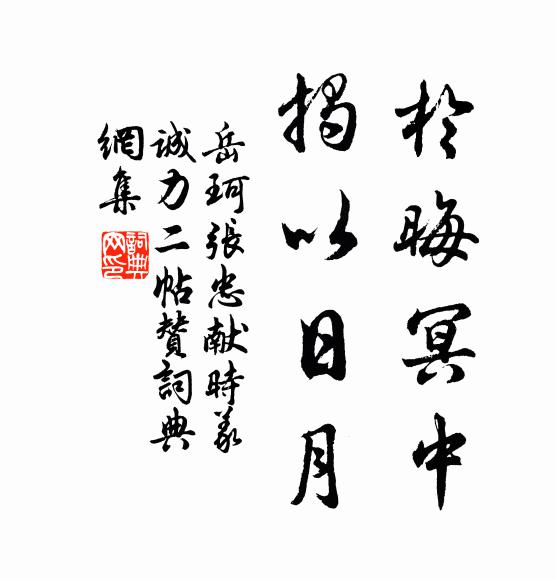 於晦冥中
揭以日月
岳珂張忠献時义
诚力二帖赞詞典
網集
詞典
网印